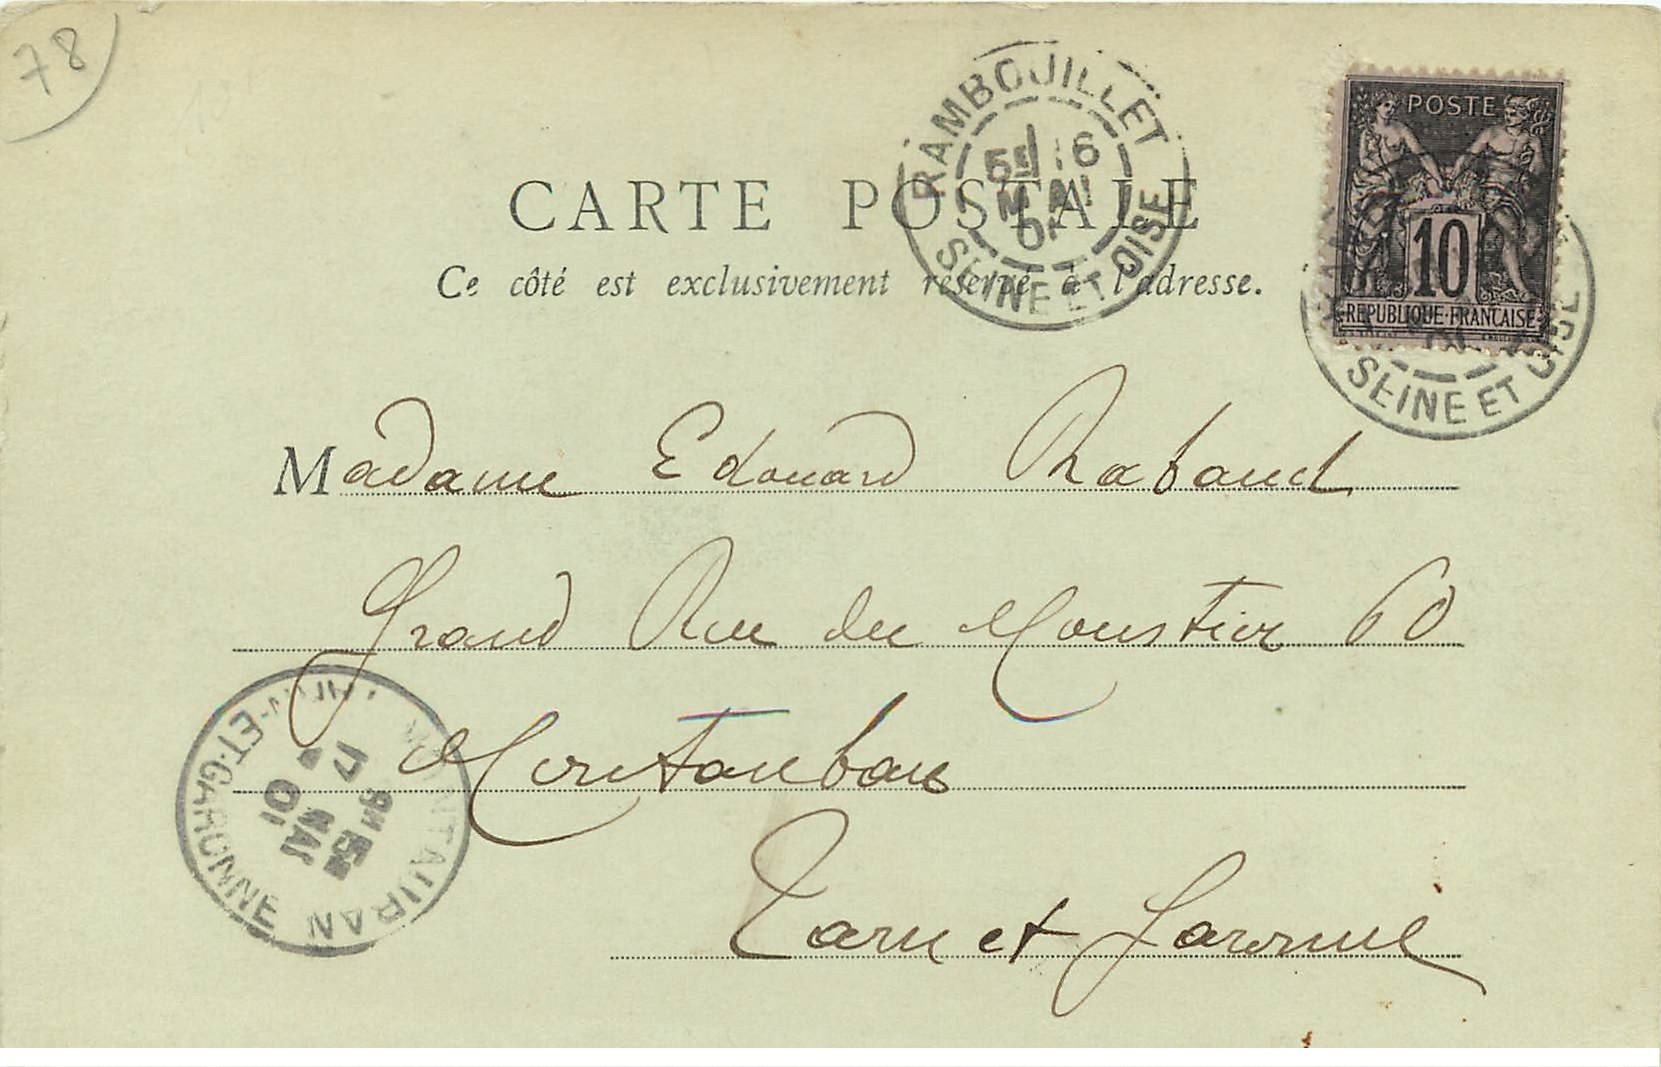 78
RAMBOUILLET
5E 16
MAI
01
SEINE ET OISE
POSTE
10
REPUBLIQUE FRANCAISE
SEINE ET OISE
CARTE POSTALE
Ce côté est exclusivement réservé à l'adresse.
Madame Edouard Rabaud
Grand Rue du Moustier 60
Montauban
Tarn et Garonne
MONTAUBAN
TARN-ET-GARONNE
17
MAI
01